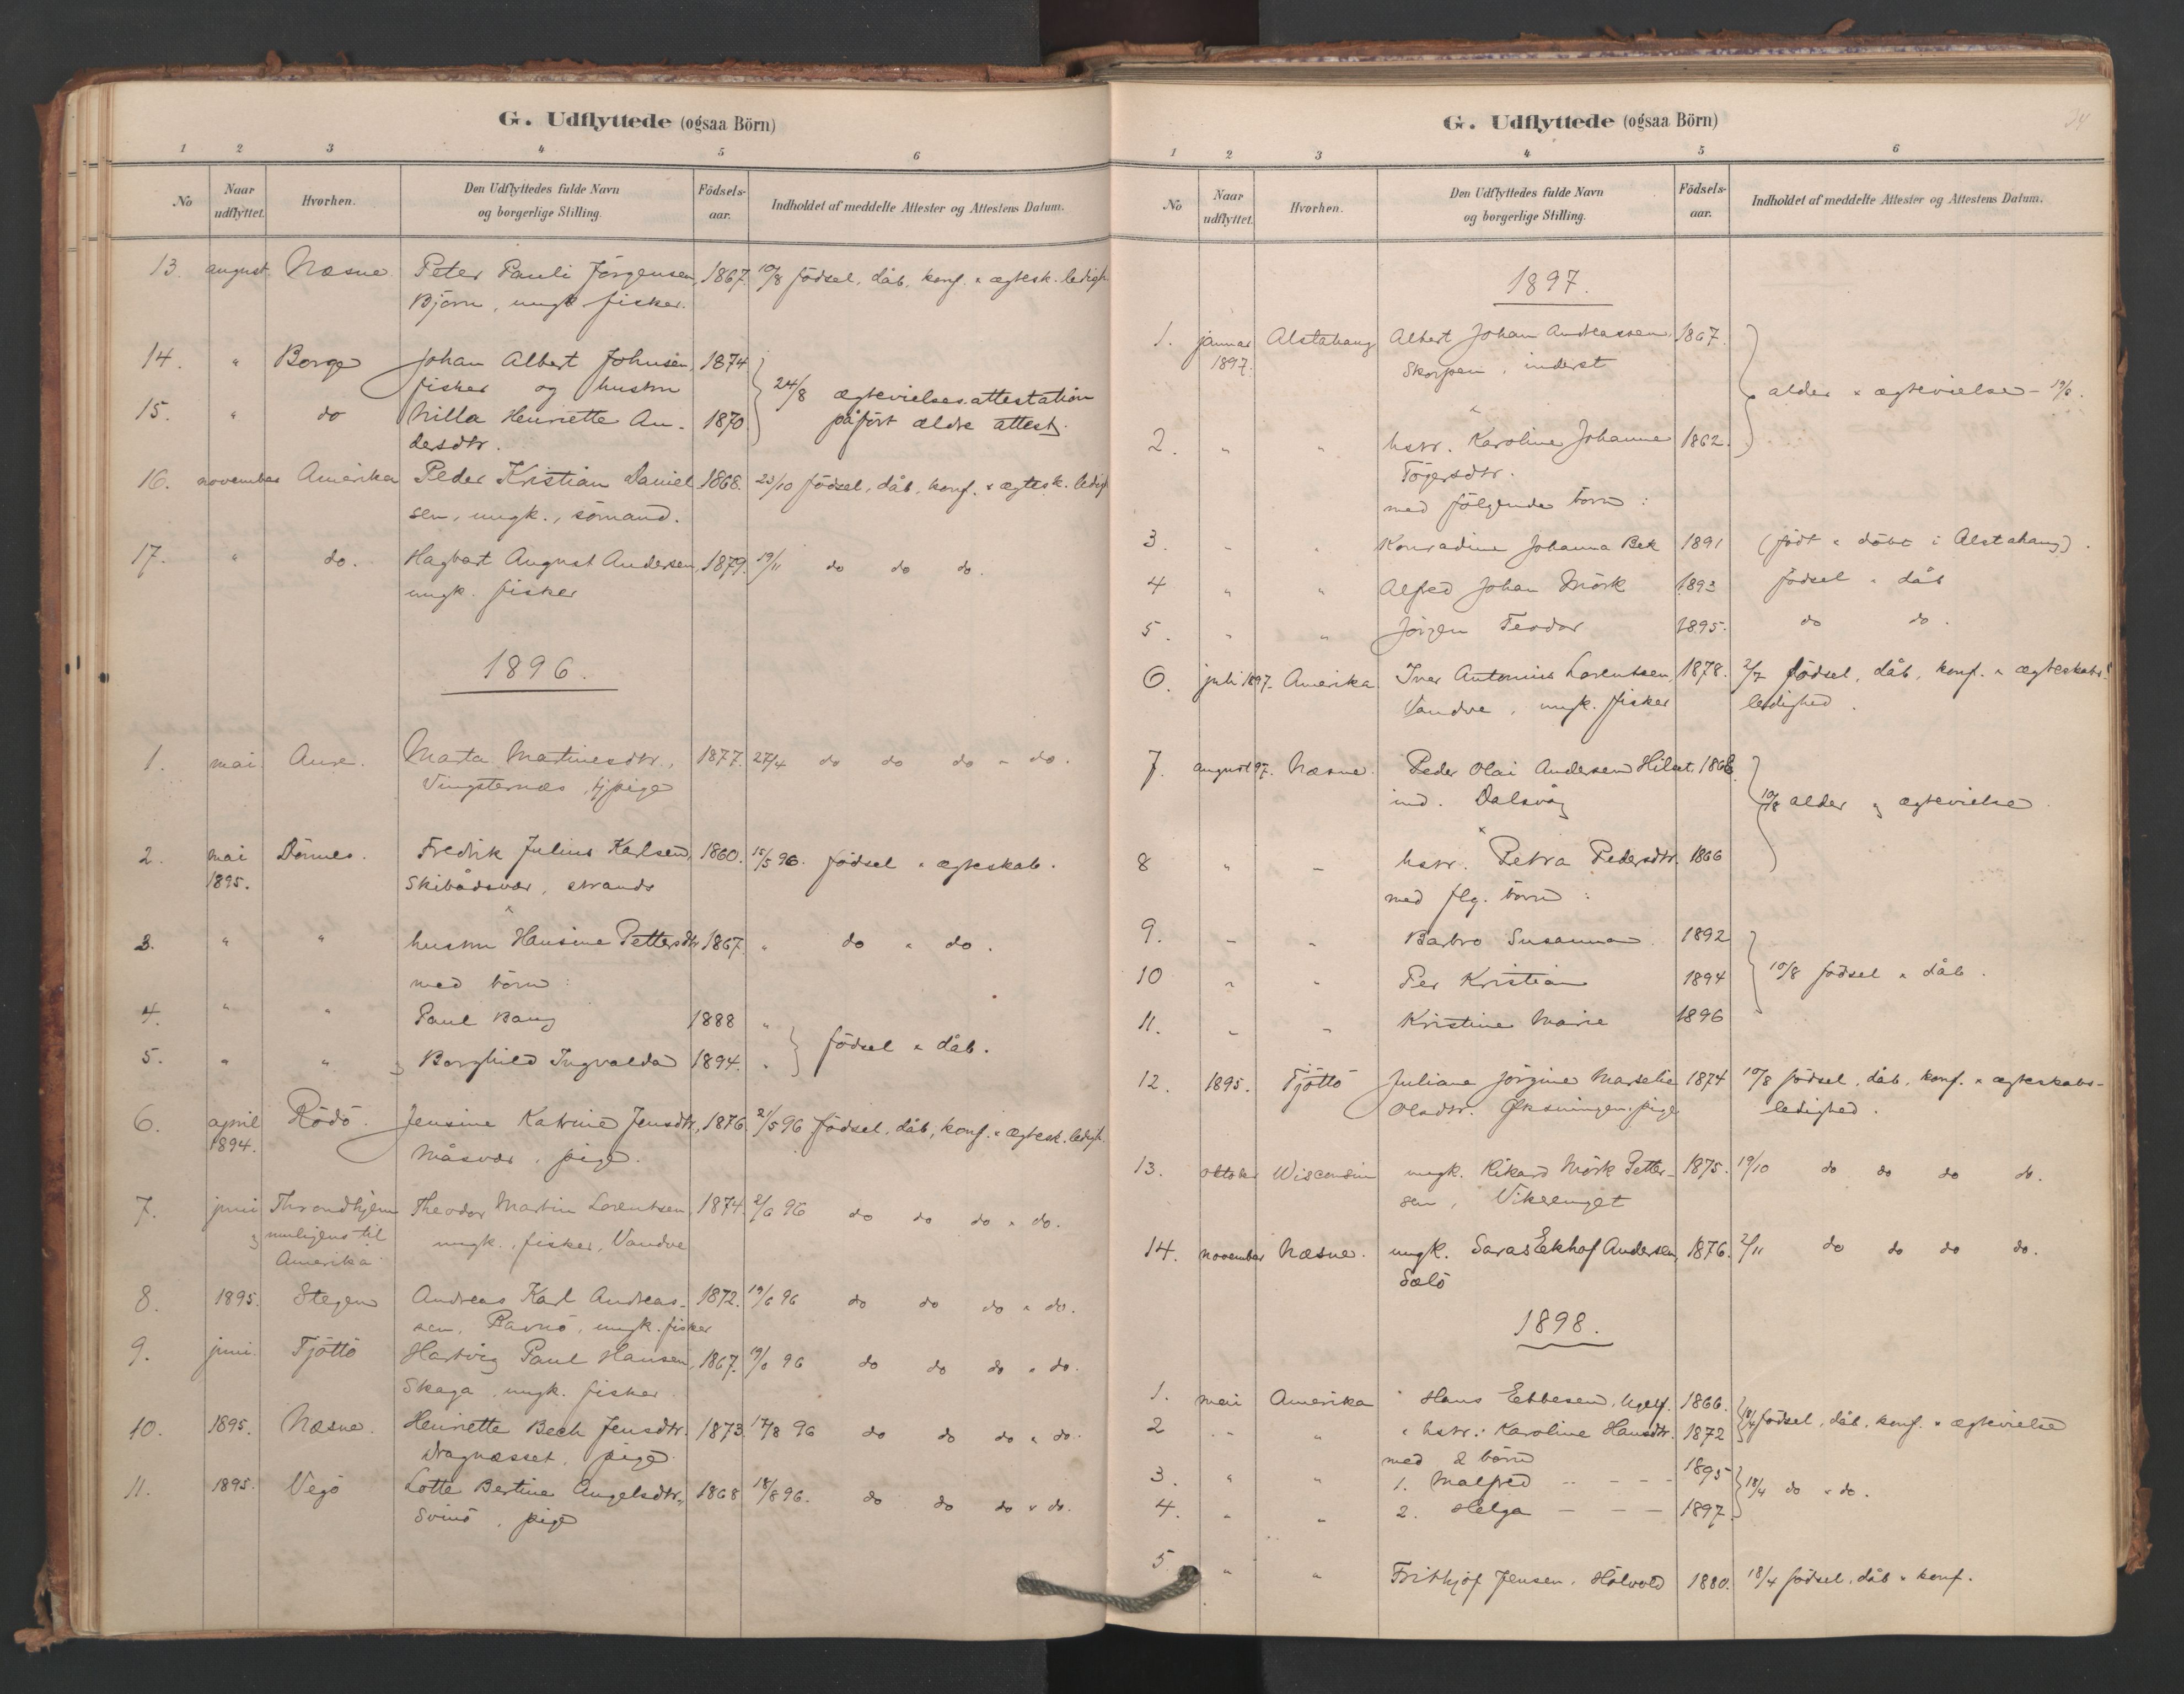 G. Udflyttede (ogsaa Börn)
1 2 3 4 5 6
No Naar udflyttet. Hvorhen. Den Udflyttedes fulde Navn og borgerlige Stilling. Födsels-aar. Indholdet af meddelte Attester og Attestens Datum.
13. august Næsne Peter Pauli Jörgensen, 1867. 10/8 födsel, dåb, konf. & ægtesk. ledigh
Björn, ungk fisker.
14. " Borge Johan Albert Johnsen, 1874
fisker og hustru 24/8 ægtevielsesattestation
15. " do Nilla Henriette An- 1870 påfört ældre attest.
dersdtr.
16. november Amerika Peder Kristian Daniel 1868. 23/10 födsel, dåb, konf. & ægtesk. ledigh
sen, ungk., sömand.
17. " do. Hagbart August Andersen, 1879. 19/11 do do do.
ungk. fisker
1896.
1. mai Aure. Marta Martinesdtr., 1877. 27/4 do do do & do.
Vingsternæs, tj.pige
2. mai Dönnes. Fredrik Julius Karlsen, 1860. 15/5 96. födsel & ægteskab.
1895. Skibådsvær, strands
3. " " hustru Hansine Pettersdtr 1867. " do & do.
med börn:
4. " " Paul Bang 1888 "
födsel & dåb.
5. " " & Borghild Ingvalda 1894. "
6. april Rödö. Jensine Katrine Jensdtr, 1876. 21/5 96 födsel, dåb, konf. & ægtesk. ledigh.
1894. Måsvær, pige.
7. juni Throndhjem Theodor Martin Lorentsen, 1874. 2/6 96 do do do & do.
& muligens til ungk., fisker, Vandve
Amerika
8. 1895. Stegen Andreas Karl Andreas- 1872. 19/6 96 do do do & do.
sen, Ravnö, ungk. fisker
9. juni. Tjöttö Hartvig Paul Hansen, 1867. 19/6 96 do do do & do.
Skaga, ungk. fisker
10. 1895. Næsne. Henriette Bech Jensdtr. 1873. 17/8 96 do do do & do.
Dragnæsset, pige.
11. 1895. Vegö Lotte Bertine Angelsdtr., 1868 18/8 96. do do do & do.
Svinö, pige
G. Udflyttede (ogsaa Börn)
1 2 3 4 5 6
No Naar udflyttet. Hvorhen. Den Udflyttedes fulde Navn og borgerlige Stilling. Födsels-aar. Indholdet af meddelte Attester og Attestens Datum.
1897.
1. januar Alstahaug Albert Johan Andreassen, 1867.
1897. Skorpen, inderst
alder & ægtevielse - 19/6.
2. " " hstr. Karoline Johanne 1862.
Tögersdtr.
med fölgende börn:
3. " " Konradine Johanna Bek 1891 (födt & döbt i Alstahaug).
4 " " Alfred Johan Mörk 1893 födsel & dåb
5. " " Jörgen Teodor 1895. do do.
6. juli 1897. Amerika. Iver Antonius Lorentsen, 1878. 2/7 födsel, dåb, konf. & ægteskabs-
Vandve, ungk. fisker ledighed.
7. august 97. Næsne. Peder Olai Andersen Hilset, 1868.
ind. Dalsvåg 10/8 alder & ægtevielse
8 " " hstr. Petra Pedersdtr. 1866
med flg. börn:
9. " " Barbro Susanna. 1892
10 " " Per Kristian 1894 10/8 födsel & dåb.
11. " " Kristine Marie 1896
12. 1895. Tjöttö Juliane Jörgine Marselie 1874 10/8 födsel, dåb, konf. & ægteskabs-
Olsdtr. Öksningen. pige ledighed.
13. oktober Wisconsin ungk. Rikard Mörk Petter- 1875. 19/10 do do do do.
sen, Vikeenget
14. november Næsne. ungk. Saras Ekhof Andersen, 1876. 2/11 do do do do.
Salö
1898.
1. mai Amerika Hans Ebbesen, 1866.
18/4 födsel, dåb, konf. & ægtevielse
2 " " " hstr.: Karoline Hansdtr. 1872
med 2 börn
3. " " 1. Malfred - - - - 1895
18/4 do & do.
4. " " 2. Helga - - - 1897
5 " " Frithjof Jensen, Hölvold 1880. 18/4 födsel, dåb & konf.